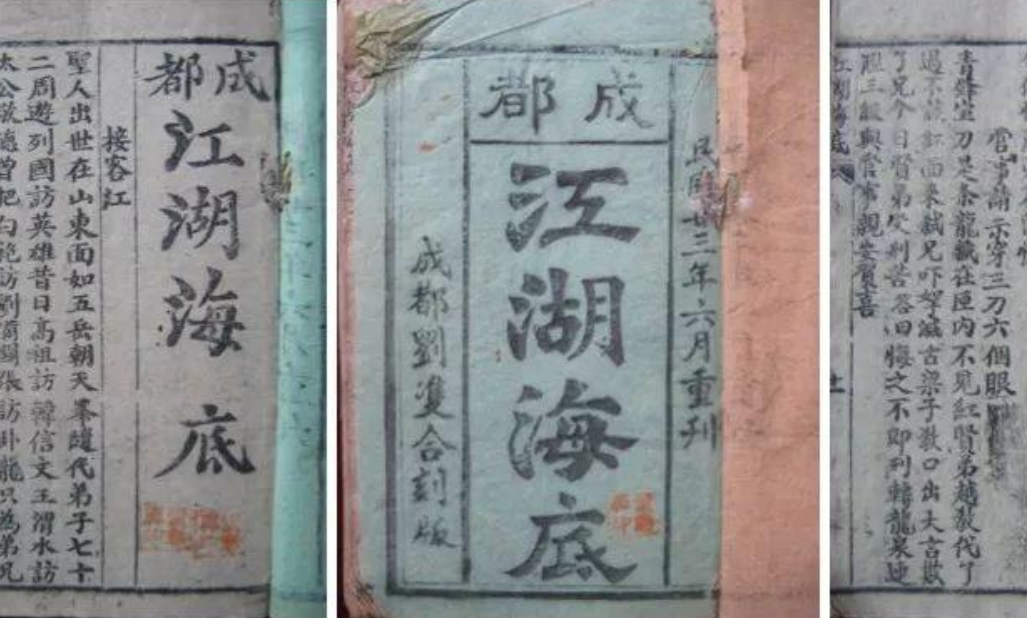 成都
江湖海底
接客紅
聖人出世在山東面如五岳朝天峯隨代弟子七十
二周遊列國訪英雄昔日高祖訪韓信文王渭水訪
太公敬德曾把白袍訪劉備關張訪卧龍只為弟兄
民國廿三年六月重刊
成都
江湖海底
成都劉雙合刻版
管事請示穿三刀六個眼
青鋒寶刀是条龍藏在匣内不見紅賢弟越教代了
過不該紅面来弑兄吓望滅古梁子教口出大言欺
了兄今日賢弟受刑苦答曰悔之不即刑轅龍泉
三級與管事親賀喜
江湖海底